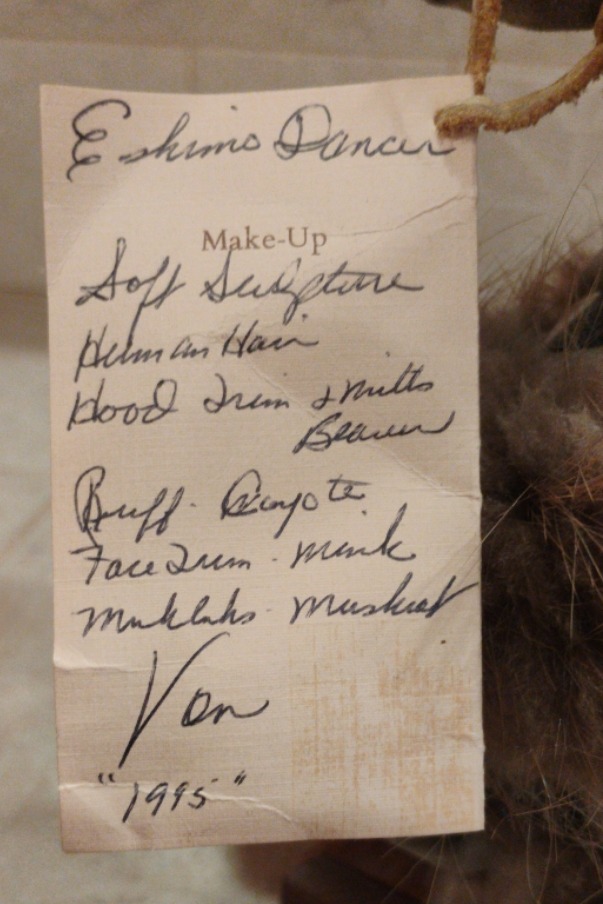 Eskimo Dancer
Make-Up
Soft Sculpture
Human Hair
Hood Trim & Mitts
Beaver
Ruff - Coyote
Face Trim - Mink
Mukluks - Muskrat
Von
"1995"